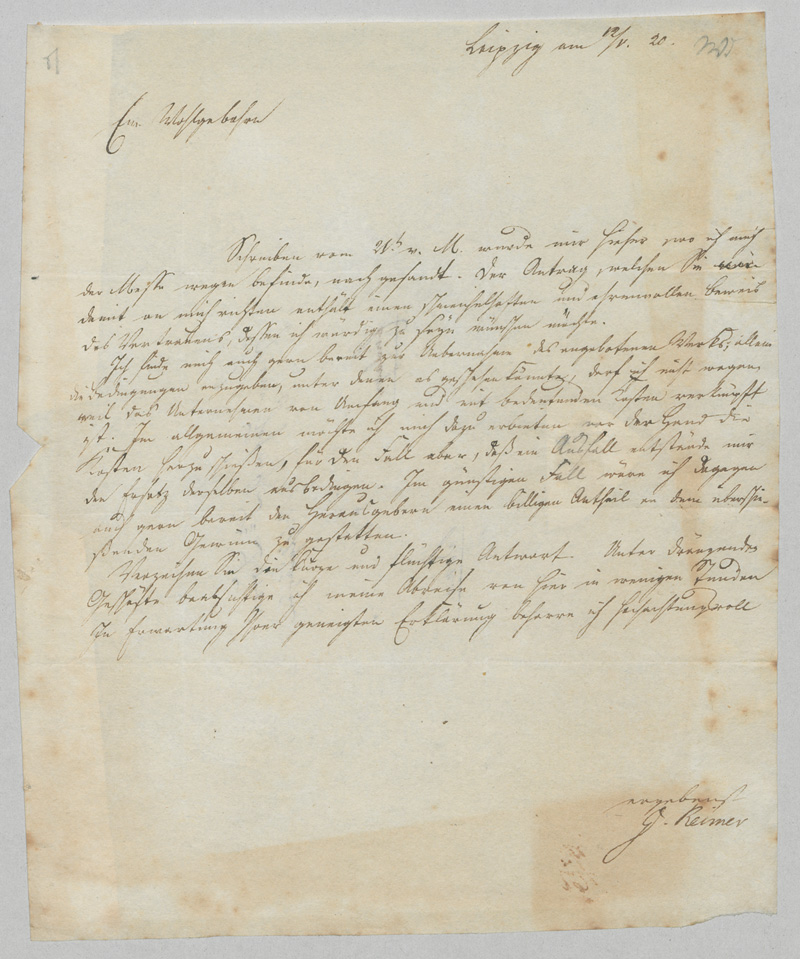 Leipzig am 12/V. 20.
Ew. Wohlgebohrn
Schreiben vom 21t v. M. wurde mir hieher, wo ich mich
der Messe wegen befinde, nachgesandt. Der Antrag, welchen Sie
damit an mich richten enthält einen schmeichelhaften und ehrenvollen Beweis
des Vertrauens, dessen ich würdig zu seyn wünschen möchte.
Ich finde mich auch gern bereit zur Uebernahme des angebotenen Werks; allein
die Bedingungen anzugeben, unter denen es geschehen könnte, darf ich nicht wagen,
weil das Unternehmen von Umfang und mit bedeutenden Kosten verknüpft
ist. Im allgemeinen möchte ich mich dazu erbieten vor der Hand die
Kosten herzuschießen, für den Fall aber, daß ein Ausfall entstände mir
den Ersatz derselben ausbedingen. Im günstigen Fall wäre ich dagegen
auch gern bereit den Herausgebern einen billigen Antheil an dem überschie-
ßenden Gewinn zu gestatten.
Verzeihen Sie die Kürze und flüchtige Antwort. Unter drängenden
Geschäften beabsichtige ich meine Abreise von hier in wenigen Stunden
In Erwartung Ihrer geneigten Erklärung beharre ich hochachtungsvoll
ergebenst
G. Reimer